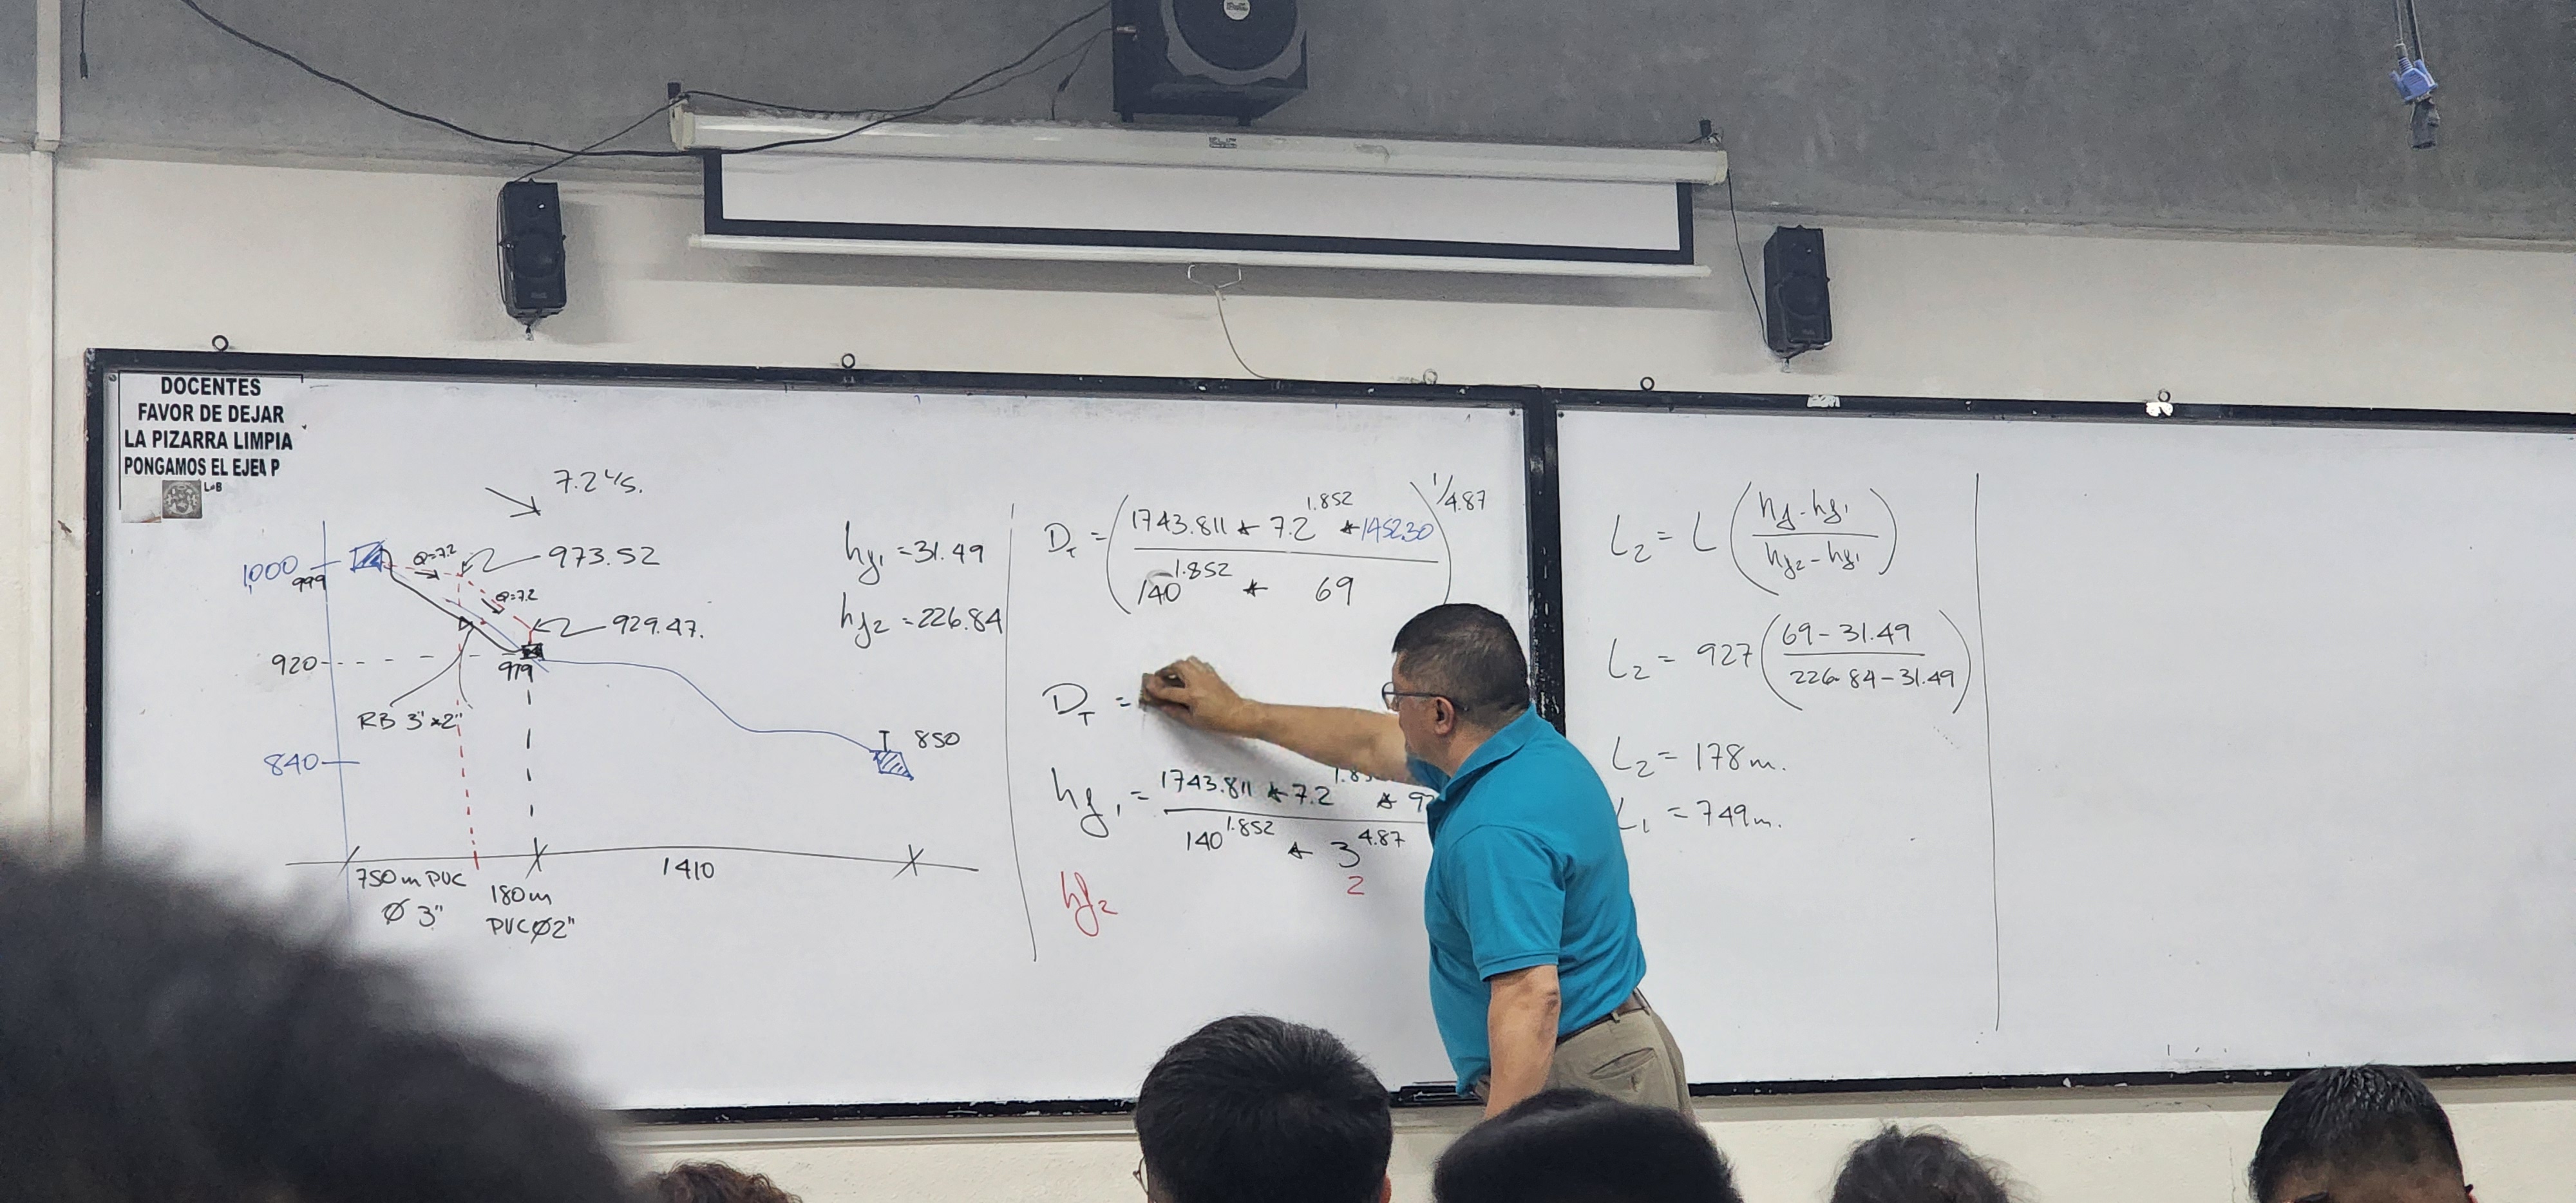 DOCENTES
FAVOR DE DEJAR
LA PIZARRA LIMPIA
PONGAMOS EL EJEM P
7.2 L/s.
1,000
999
Q=7.2
973.52
Q=7.2
929.47.
920
919
RB 3" x 2"
840
850
750m PVC
Ø 3"
180m
PVC Ø 2"
1410
hf1 = 31.49
hf2 = 226.84
DT = (1743.811 * 7.2^1.852 * 1452.30 / 140^1.852 * 69)^1/4.87
DT =
hf1 = 1743.811 * 7.2 * / 140^1.852 * 3^4.87
2
hf2
L2 = L (hf - hf1 / hf2 - hf1)
L2 = 927 (69 - 31.49 / 226.84 - 31.49)
L2 = 178m.
L1 = 749m.